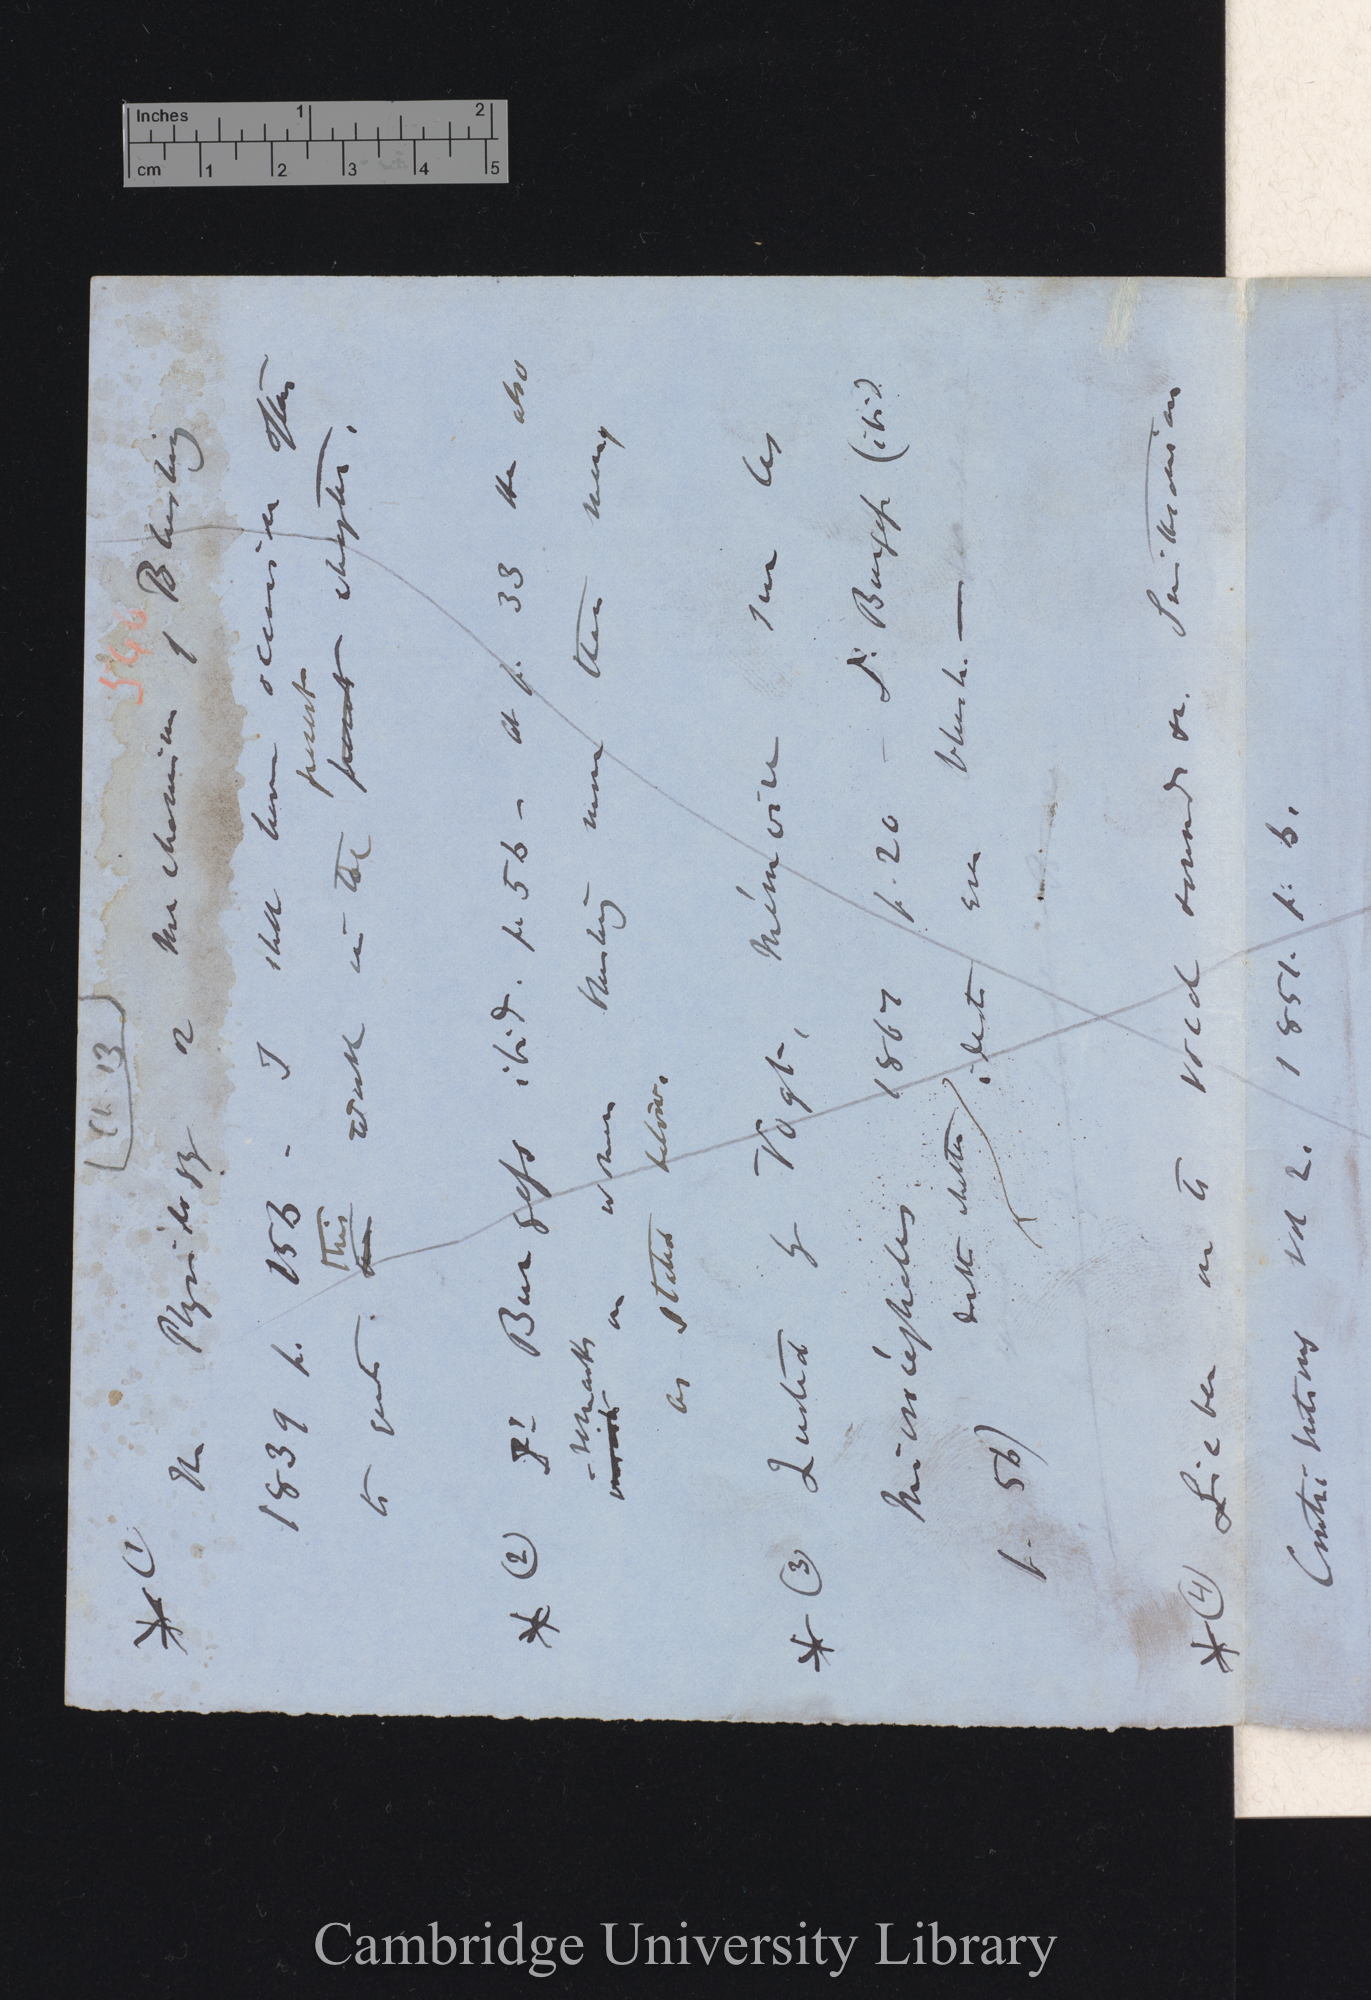 Inches 1 2
cm 1 2 3 4 5
Ch. 13
*(1) The Physiology or Mechanism of Blushing
1839 p. 156 - I shall have occasion often
This present
to quote work in the present chapter.
*(2) Dr Burgess ibid. p. 56 - at p. 33 he also
remarks on women blushing more than men,
as stated below.
*(3) Quoted by Vogt, Mémoire sur les
Microcéphales 1867 p. 20 - Dr Burgess (ibid
p. 56) doubts whether idiots ever blush. —
*(4) Lieber on the vocal sounds &c. Smithsonian
Contributions vol 2. 1851. p. 6.
Cambridge University Library